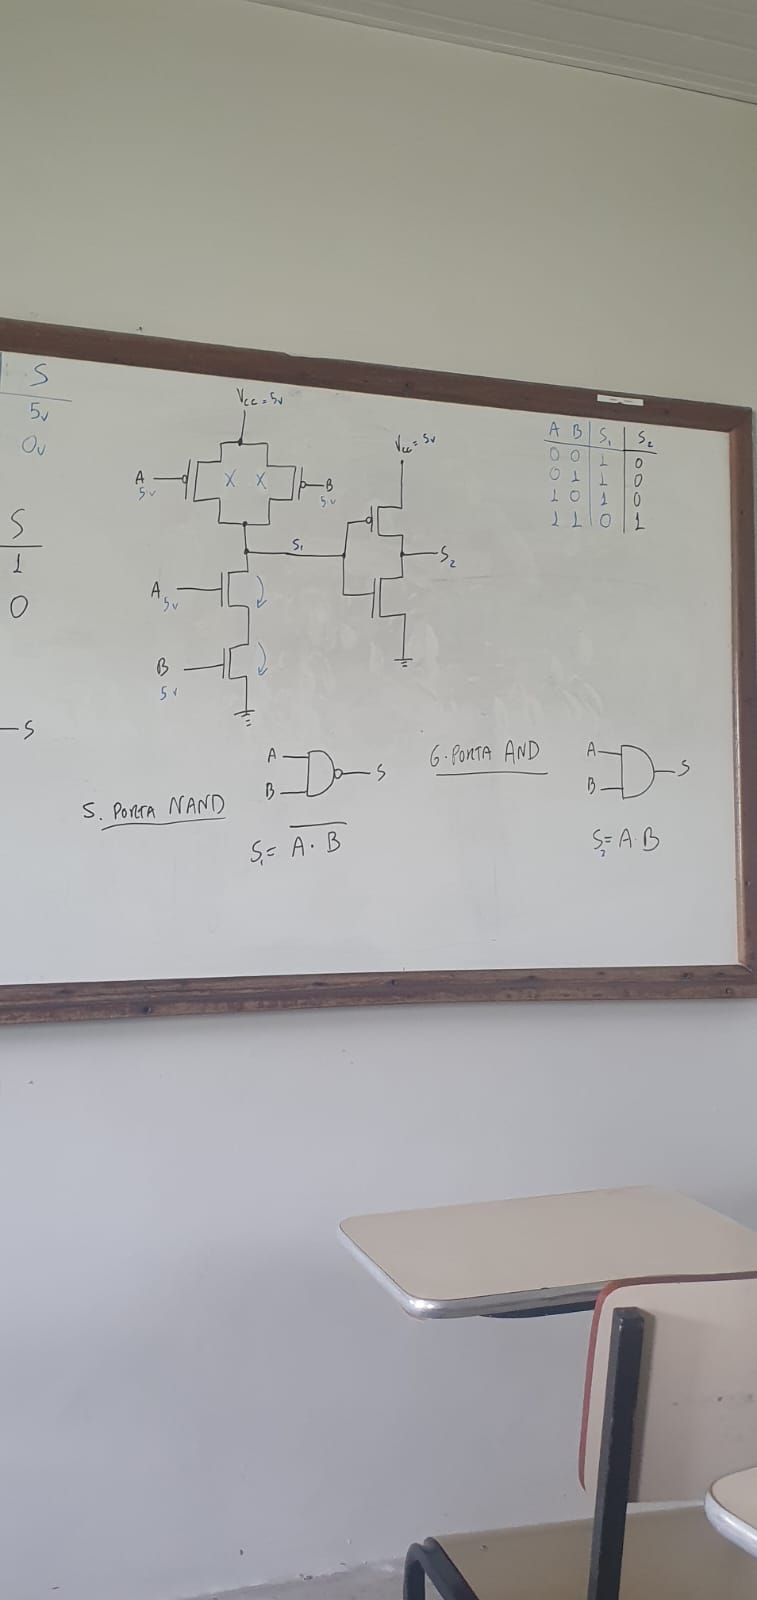 S
5v
0v
S
1
0
S
Vcc = 5v
A
5v
B
5v
S₁
A
5v
B
5v
Vcc = 5v
S₂
A B S₁ S₂
0 0 1 0
0 1 1 0
1 0 1 0
1 1 0 1
5. PORTA NAND
A
B
S
S₁ = A̅ ̅·̅ ̅B̅
6. PORTA AND
A
B
S
S₂ = A·B